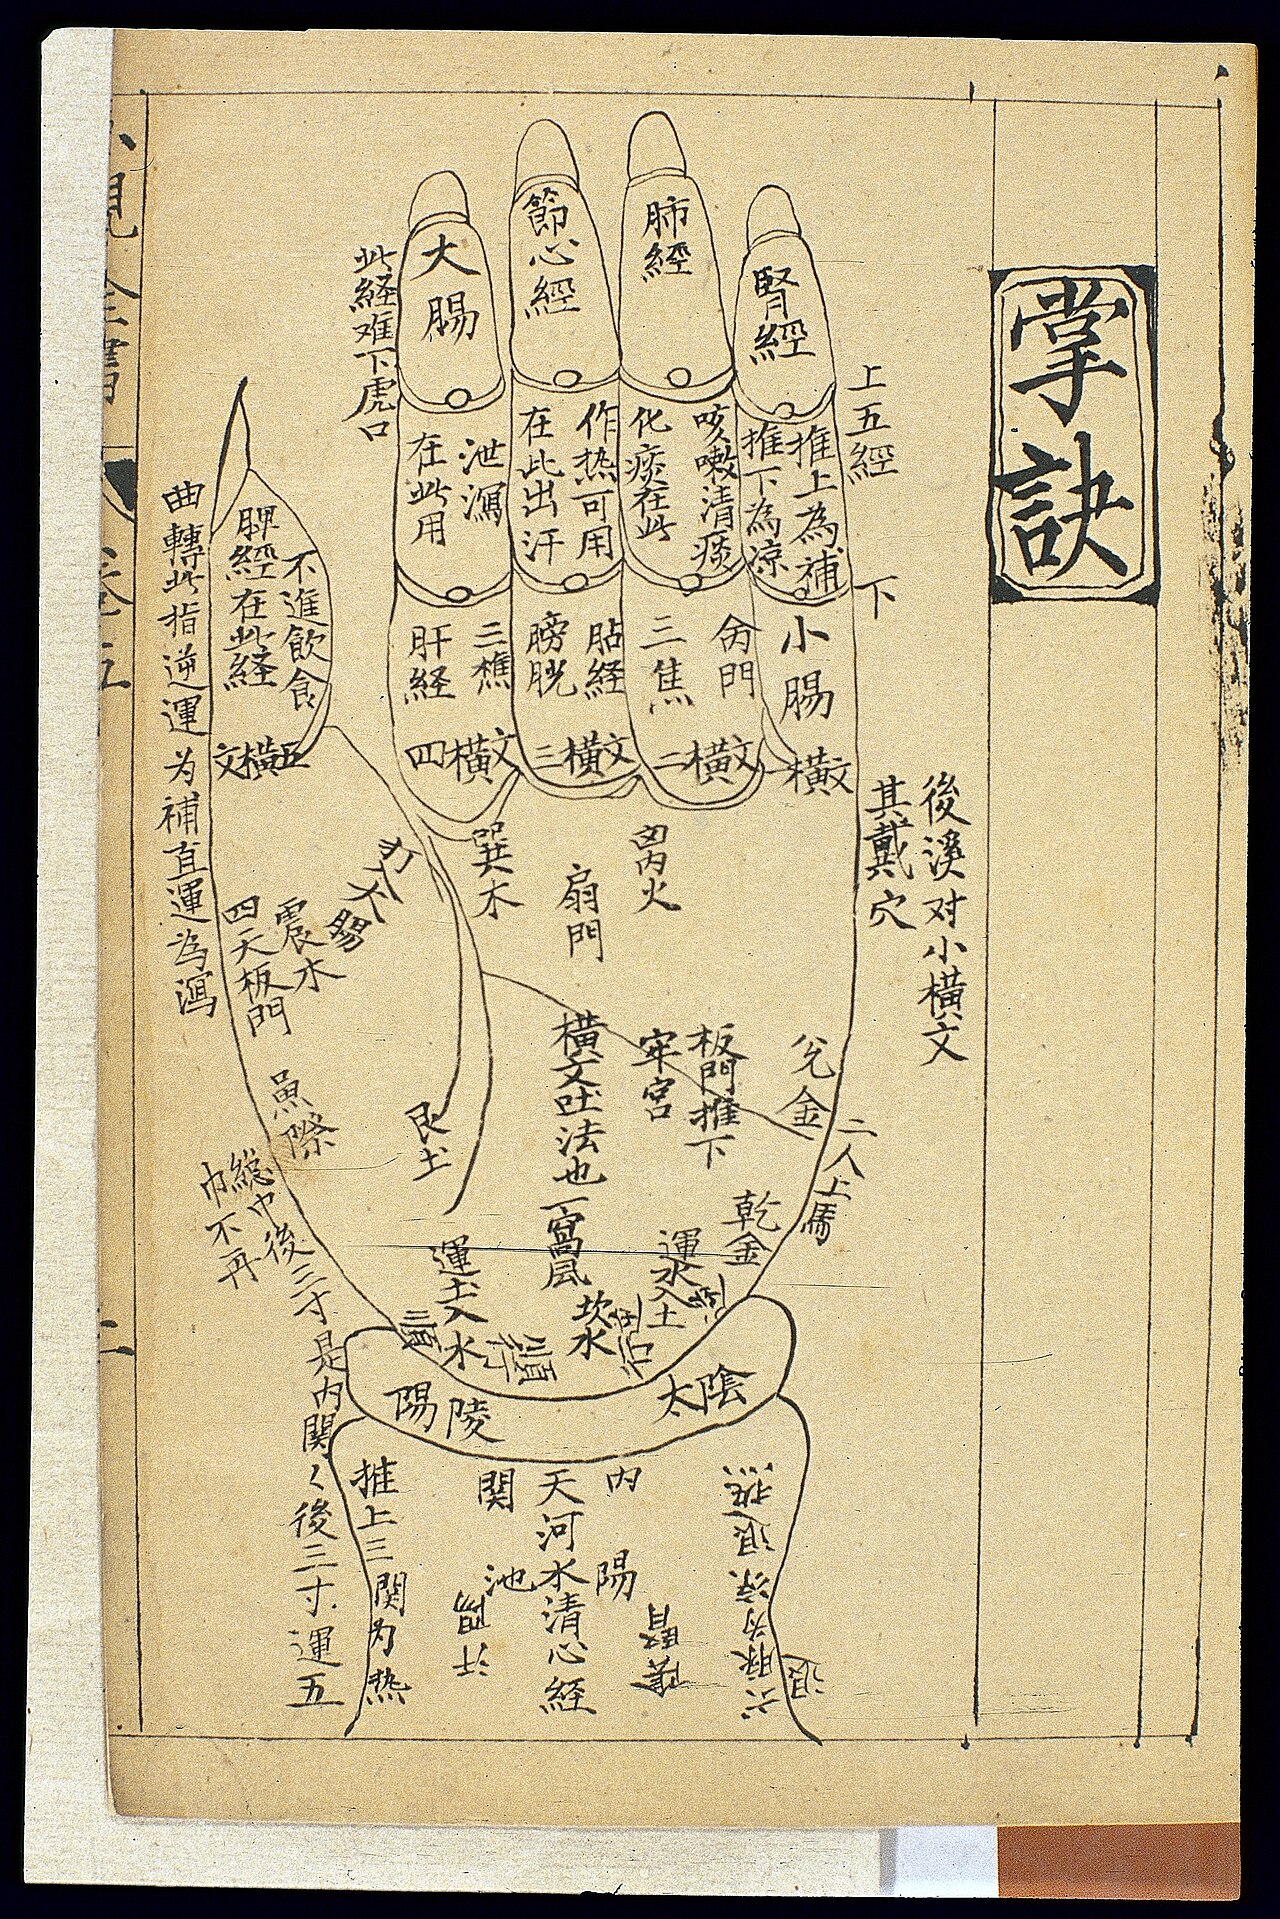 掌訣
上五經
下
後溪对小橫文
其戴穴
二人上馬
腎經
推上為補
推下為凉
小腸
一橫文
肺經
咳嗽清痰
化痰在此
命門
三焦
二橫文
節心經
作热可用
在此出汗
胋経
膀胱
三橫文
大腸
泄瀉
在此用
三樵
肝経
四橫文
此経难下虎口
不進飲食
脾經在此経
五橫文
曲轉此指逆運为補直運為瀉
巽木
扇門
离丙火
打大腸
震木
四天板門
魚際
艮土
橫文吐法也一窩风
牢宮
板門推下
兌金
乾金
運水入土
坎水
運土入水
順
順行
総巾後三寸是内関々後三寸運五
巾不再
太陰
陽陵
内
関
陽
池
天河水清心経
推上三関为热
六腑为凉退热
退